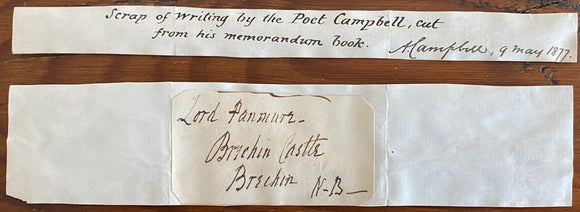 Scrap of Writing by the Poet Campbell, cut
from his memorandum book. A Campbell, 9 May 1877.
Lord Panmure-
Brechin Castle
Brechin N-B-